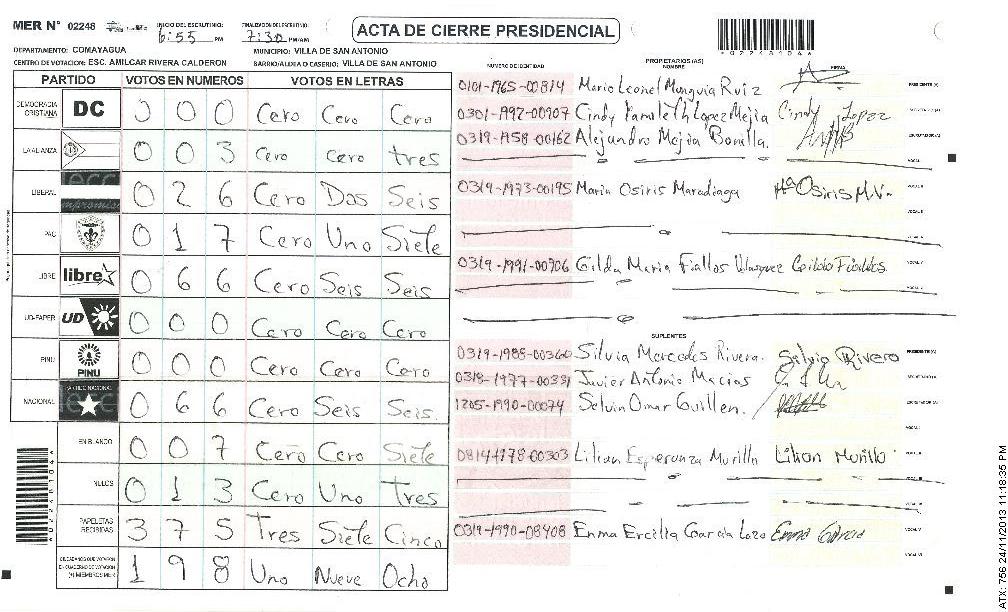 MER N° 02248 INICIO DEL ESCRUTINIO: 6:55 PM FINALIZACIÓN DEL ESCRUTINIO: 7:30 PM/AM
ACTA DE CIERRE PRESIDENCIAL
*02248104*
DEPARTAMENTO: COMAYAGUA MUNICIPIO: VILLA DE SAN ANTONIO
CENTRO DE VOTACION: ESC. AMILCAR RIVERA CALDERON BARRIO/ALDEA O CASERIO: VILLA DE SAN ANTONIO
PARTIDO VOTOS EN NUMEROS VOTOS EN LETRAS
DEMOCRACIA CRISTIANA DC 0 0 0 Cero Cero Cero
LA ALIANZA 0 0 3 Cero cero tres
LIBERAL 0 2 6 Cero Dos Seis
PAC 0 1 7 Cero Uno Siete
LIBRE libre 0 6 6 Cero Seis Seis
UD-FAPER UD 0 0 0 Cero Cero Cero
PINU PINU 0 0 0 Cero Cero Cero
NACIONAL 0 6 6 Cero Seis Seis.
EN BLANCO 0 0 7 Cero Cero Siete
NULOS 0 1 3 Cero Uno Tres
PAPELETAS RECIBIDAS 3 7 5 Tres Siete Cinco
CIUDADANOS QUE VOTARON EN CUADERNO DE VOTACION (+) MIEMBROS MER 1 9 8 Uno Nueve Ocho
PROPIETARIOS (AS)
NUMERO DE IDENTIDAD NOMBRE FIRMA
0101-1965-00814 Mario Leonel Munguia Ruiz PRESIDENTE (A)
0301-1992-00907 Cindy Yamileth Lopez Mejia Cindy Lopez
0319-1958-00162 Alejandro Mejia Bonilla.
VOCAL I
0319-1973-00195 Maria Osiris Maradiaga Mª Osiris M.V. VOCAL II
0319-1991-00906 Gilda Maria Fiallos Velasquez Gilda Fiallos
SUPLENTES
0319-1988-00360 Silvia Mercedes Rivera. Silvia Rivera PRESIDENTE (A)
0318-1977-00331 Javier Antonio Macias SECRETARIO (A)
1205-1990-00074 Selvin Omar Guillen. ESCRUTADOR (A)
VOCAL I
0814-1178-00303 Lilian Esperanza Murillo Lilian Murillo VOCAL II
0319-1990-08408 Enma Ercilia Garcia Lozo Enma Garcia VOCAL V
VOCAL VI
ATX: 756 24/11/2013 11:18:35 PM